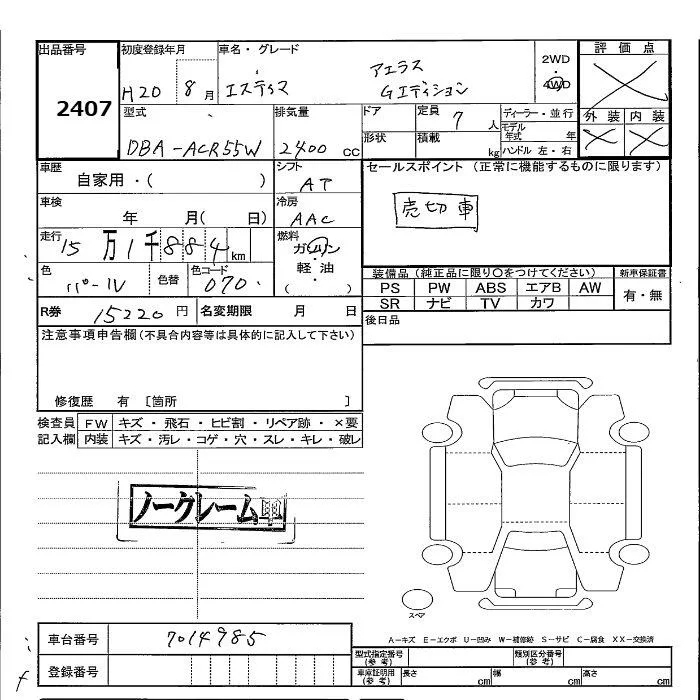 出品番号
2407
初度登録年月
H20 8月
車名・グレード
エスティマ アエラス Gエディション
2WD
4WD
評価点
外装 内装
型式
DBA-ACR55W
排気量
2400 cc
ドア
形状
定員 7人
積載 kg
ディーラー・並行
モデル年式 年
ハンドル 左・右
車歴
自家用・( )
シフト
AT
セールスポイント (正常に機能するものに限ります)
売切車
車検
年 月( 日)
冷房
AAC
走行
15万1千884km
燃料
ガソリン
軽・油
( )
色
パール
色替
色コード
070
装備品(純正品に限り○をつけてください)
新車保証書
PS PW ABS エアB AW
SR ナビ TV カワ
有・無
R券 15220円
名変期限 月 日
後日品
注意事項申告欄(不具合内容等は具体的に記入して下さい)
修復歴 有 [箇所 ]
検査員記入欄
FW キズ・飛石・ヒビ割・リペア跡・×要
内装 キズ・汚レ・コゲ・穴・スレ・キレ・破レ
ノークレーム車
スペア
車台番号 7014985
登録番号
A-キズ E-エクボ U-凹み W-補修跡 S-サビ C-腐食 XX-交換済
型式指定番号(参考)
類別区分番号(参考)
車庫証明用(参考) 長さ cm 幅 cm 高さ cm